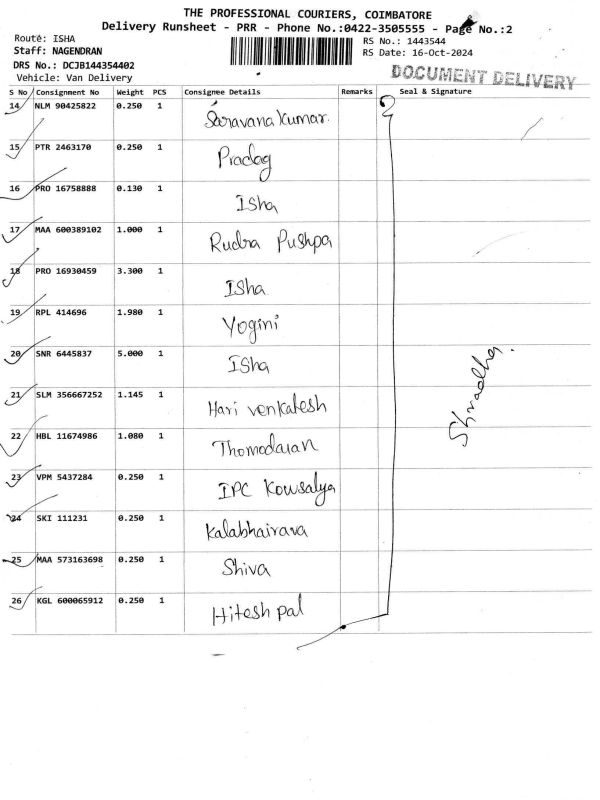 THE PROFESSIONAL COURIERS, COIMBATORE
Delivery Runsheet - PRR - Phone No.:0422-3505555 - Page No.:2
Route: ISHA
RS No.: 1443544
Staff: NAGENDRAN
RS Date: 16-Oct-2024
DRS No.: DCJB144354402
Vehicle: Van Delivery
DOCUMENT DELIVERY
S No Consignment No Weight PCS Consignee Details Remarks Seal & Signature
14 NLM 90425822 0.250 1 Saravana Kumar.
15 PTR 2463170 0.250 1 Pradag
16 PRO 16758888 0.130 1 Isha
17 MAA 600389102 1.000 1 Rudra Pushpa
18 PRO 16930459 3.300 1 Isha
19 RPL 414696 1.980 1 Yogini
20 SNR 6445837 5.000 1 Isha
21 SLM 356667252 1.145 1 Hari venkatesh
22 HBL 11674986 1.080 1 Thomodaran
23 VPM 5437284 0.250 1 IPC Kowsalya
24 SKI 111231 0.250 1 Kalabhairava
25 MAA 573163698 0.250 1 Shiva
26 KGL 600065912 0.250 1 Hitesh pal
Shraddha.